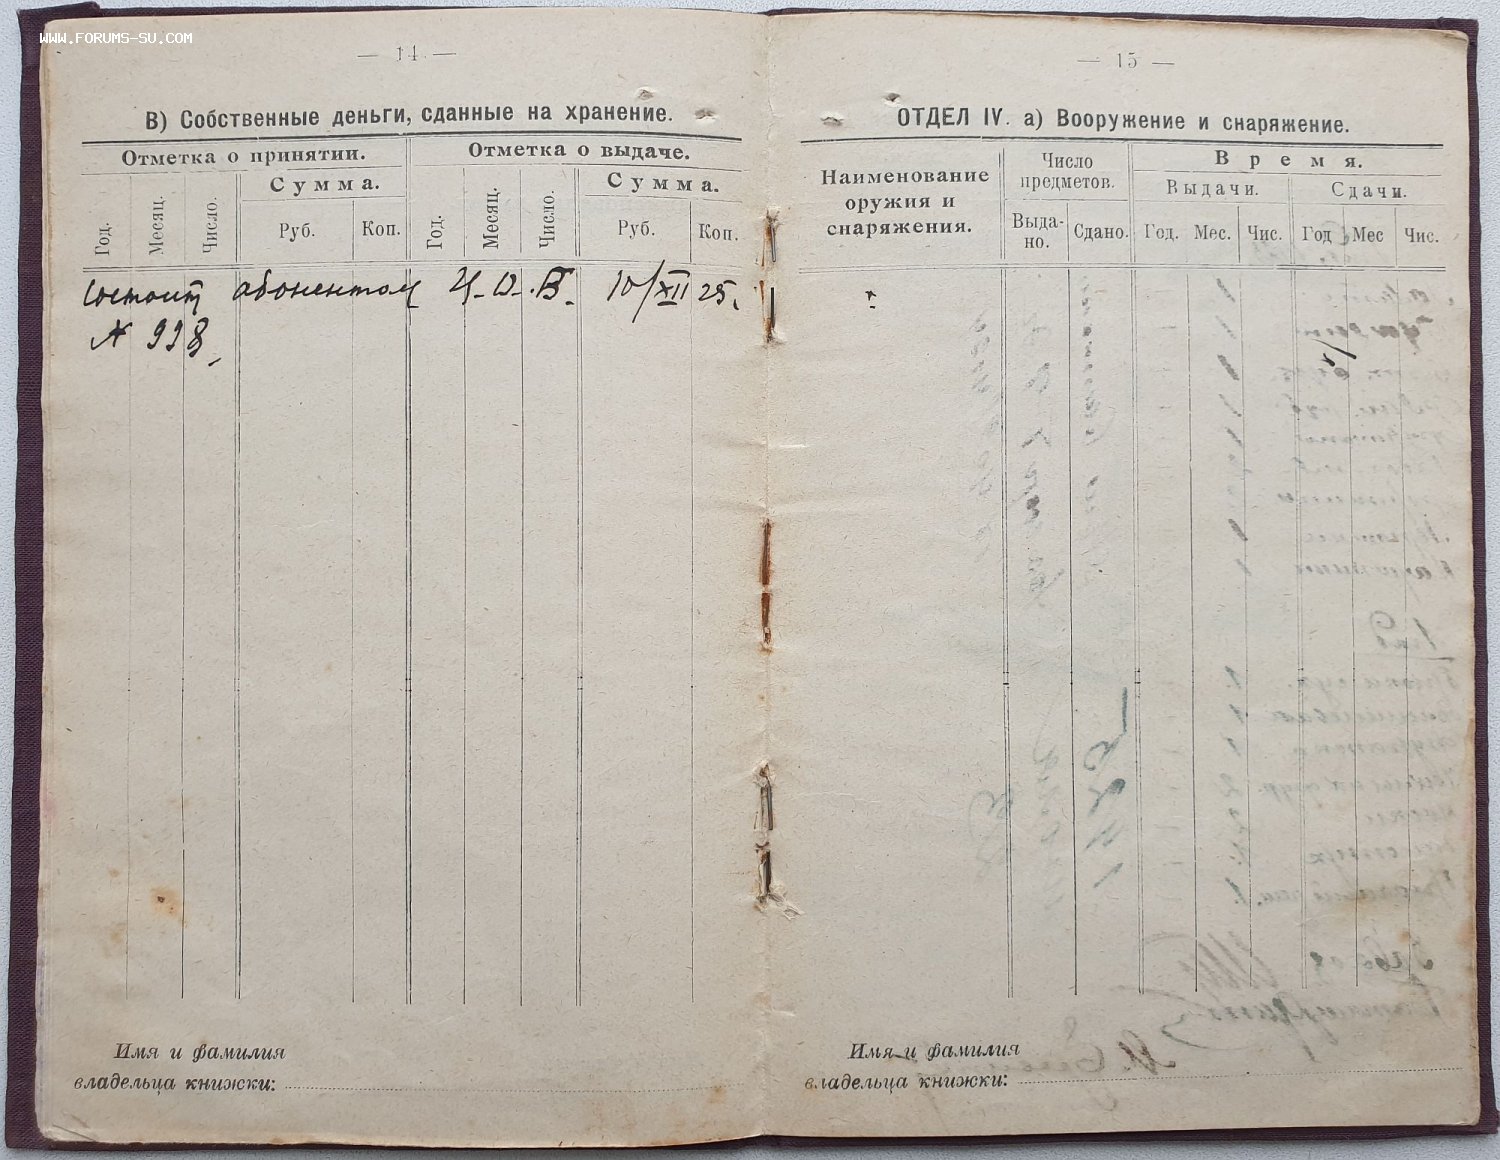 WWW.FORUMS-SU.COM
— 14 —
В) Собственные деньги, сданные на хранение.
Отметка о принятии. Отметка о выдаче.
Год. Месяц. Число. Сумма. Год. Месяц. Число. Сумма.
Руб. Коп. Руб. Коп.
Состоит абонентом 10/XII 25.
№ 998
Имя и фамилия
владельца книжки:
— 15 —
ОТДЕЛ IV. а) Вооружение и снаряжение.
Наименование
оружия и
снаряжения.
Число
предметов.
Время.
Выдачи. Сдачи.
Выда-
но. Сдано. Год. Мес. Чис. Год Мес Чис.
Имя и фамилия
владельца книжки: